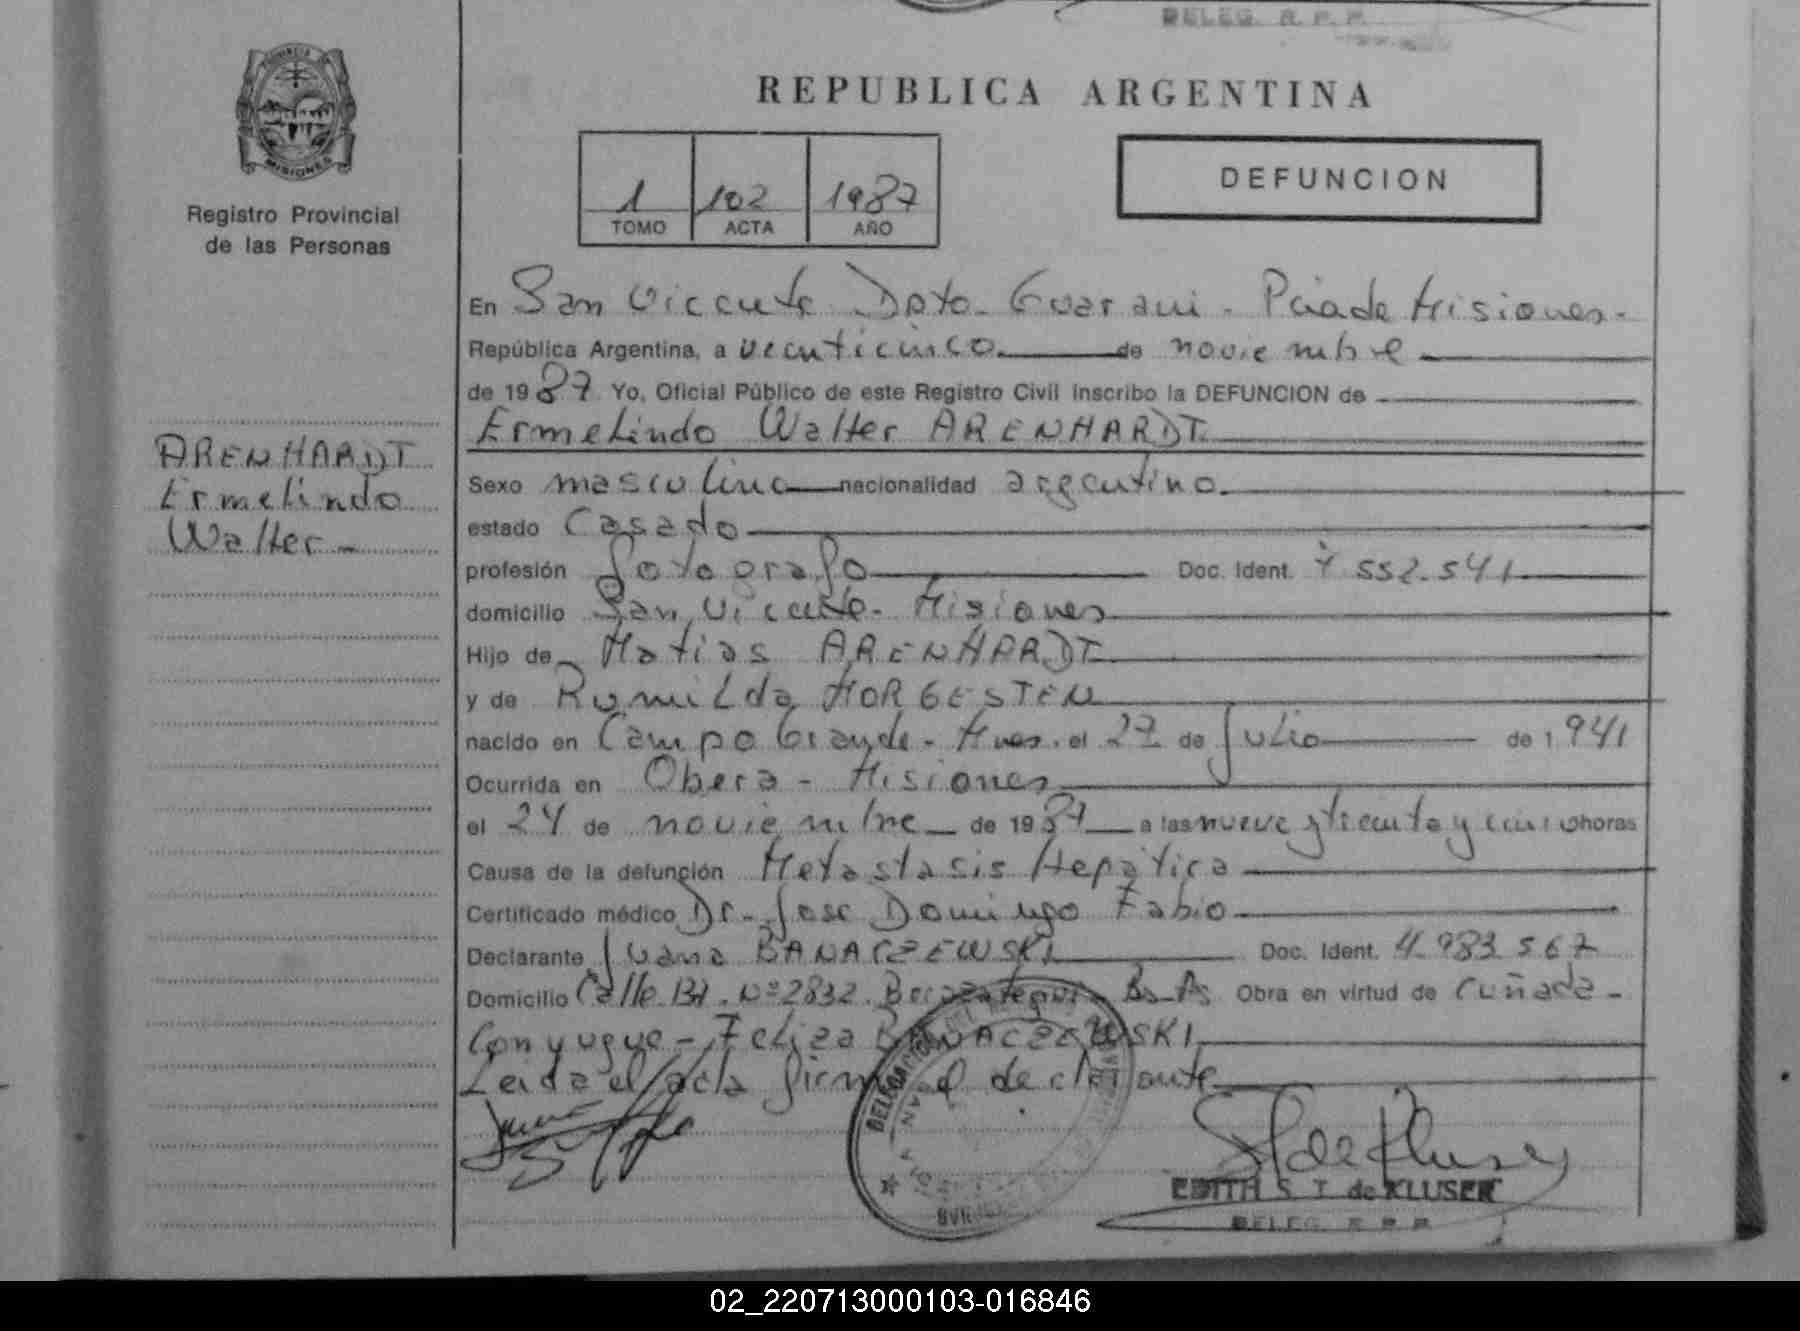 DELEG. R. P. P.
REPUBLICA ARGENTINA
PROVINCIA
MISIONES
Registro Provincial
de las Personas
1 102 1987
TOMO ACTA AÑO
DEFUNCION
En San Vicente Dpto. Guarani - Pcia de Misiones.
República Argentina, a veinticinco de noviembre
de 1987 Yo, Oficial Público de este Registro Civil inscribo la DEFUNCION de
Ermelindo Walter ARENHARDT
ARENHARDT
Ermelindo
Walter
Sexo masculino nacionalidad argentino
estado Casado
profesión fotografo Doc. Ident. 7 552.541
domicilio San Vicente - Misiones
Hijo de Matias ARENHARDT
y de Romilda MORGESTEN
nacido en Campo Grande - Mnes. el 27 de Julio de 1941
Ocurrida en Obera - Misiones
el 24 de noviembre de 1987 a las nueve y treinta y cinco horas
Causa de la defunción Metastasis Hepática
Certificado médico Dr. Jose Domingo Fabio
Declarante Juana BANACZEWSKI Doc. Ident. 4.983.567
Domicilio Calle 131. Nº 2832. Berazategui - Bs. As. Obra en virtud de cuñada -
Conyugue - Feliza BANACZEWSKI
Leida el acta firma el declarante
EDITH S. T. de KLUSER
DELEG. R. P. P.
02_220713000103-016846